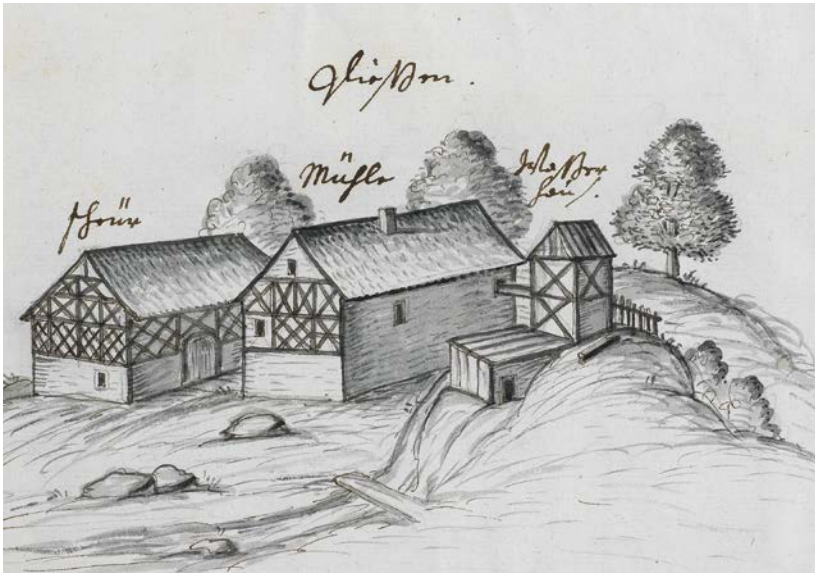 Gließen.
scheür
Mühle
Waßer
hauß.